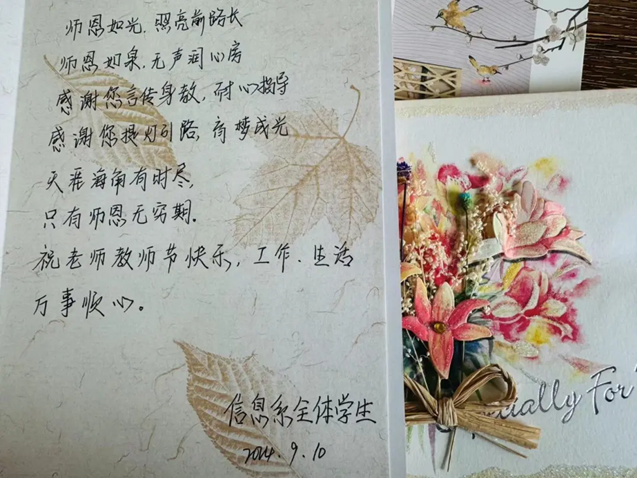 师恩如光,照亮前路长
师恩如泉,无声润心房
感谢您言传身教,耐心指导
感谢您提灯引路,育梦成光
天涯海角有时尽,
只有师恩无穷期.
祝老师教师节快乐,工作、生活
万事顺心。
信息系全体学生
2024.9.10
ecially For